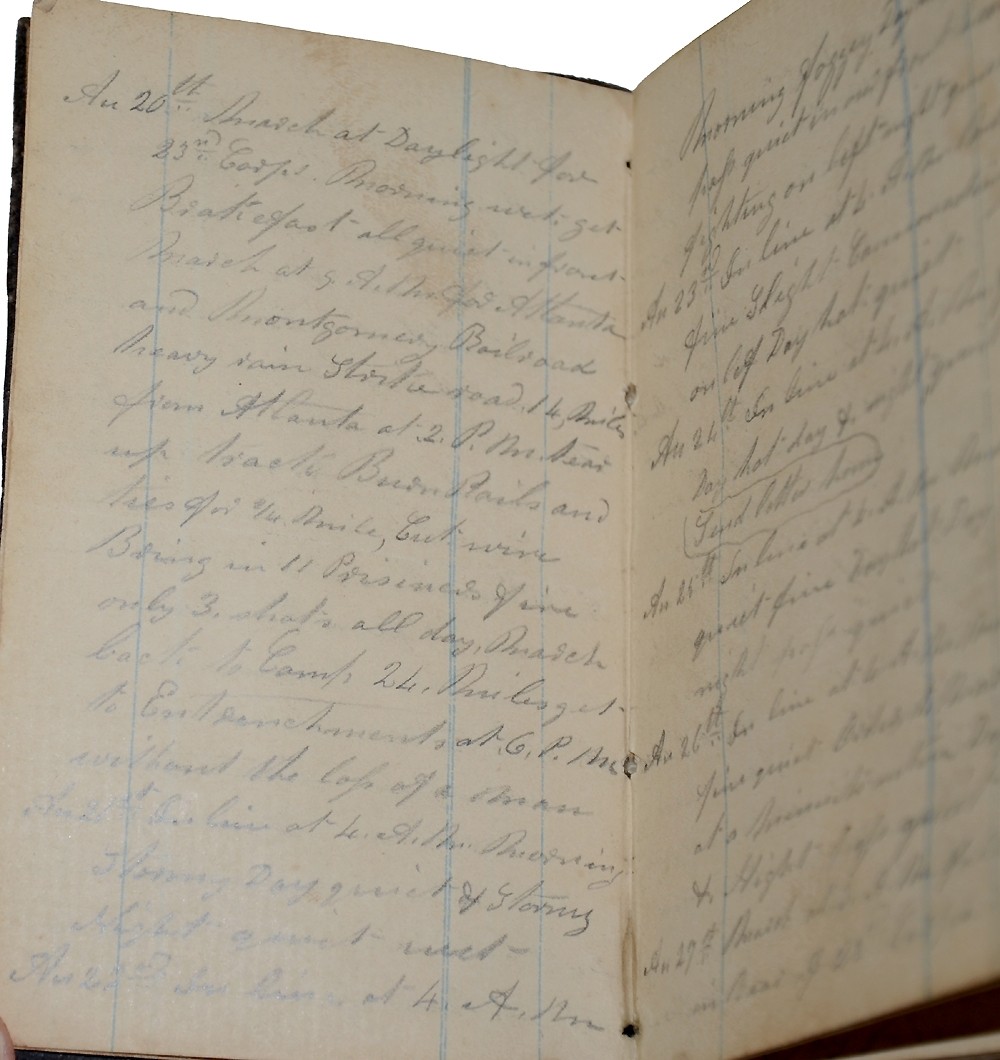 Au 20th March at Daylight for
23rd Corps. Morning wet. get
Brakefast all quiet in front
March at 9 A.M. for Atlanta
and Montgomery Railroad
heavy rain Strike road 14 Miles
from Atlanta at 2. P.M. tear
up track Burn Rails and
ties for 3/4 Mile, Cut wire
Bring in 11 Prisiners fire
only 3. shots all day, March
back to Camp 24. Miles get
to Entrenchments at 6. P. M.
without the loss of a man
Au 21st In line at 4. A.M. Morning
Stormy Day quiet & Stormy
Night quiet wet
Au 22nd In line at 4. A. M
Morning foggy Day
pass quiet in our front
fighting on left night quiet
Au 23rd In line at 4. A.M.
fine Slight Cannonading
on left Day hot quiet
Au 24th In line at 4. A.M.
Day hot day &
Send letter home
Au 25th In line at 4. A.M.
quiet fine Day
night pass quiet
Au 26th In line at 4 A.M.
fine quiet Orders
at a Minuits notice
& Night pass quiet
Au 27th March at
in Rear of 23